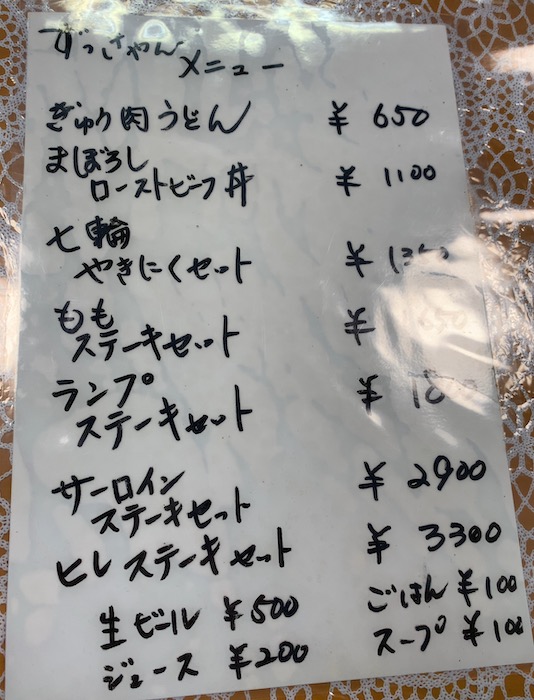 メニュー
ぎゅり肉うどん ¥650
まぼろし
ローストビーフ丼 ¥1100
七輪
やきにくセット ¥
もも
ステーキセット ¥
ランプ
ステーキセット ¥
サーロイン
ステーキセット ¥2900
ヒレステーキセット ¥3300
生ビール ¥500 ごはん ¥100
ジュース ¥200 スープ ¥100